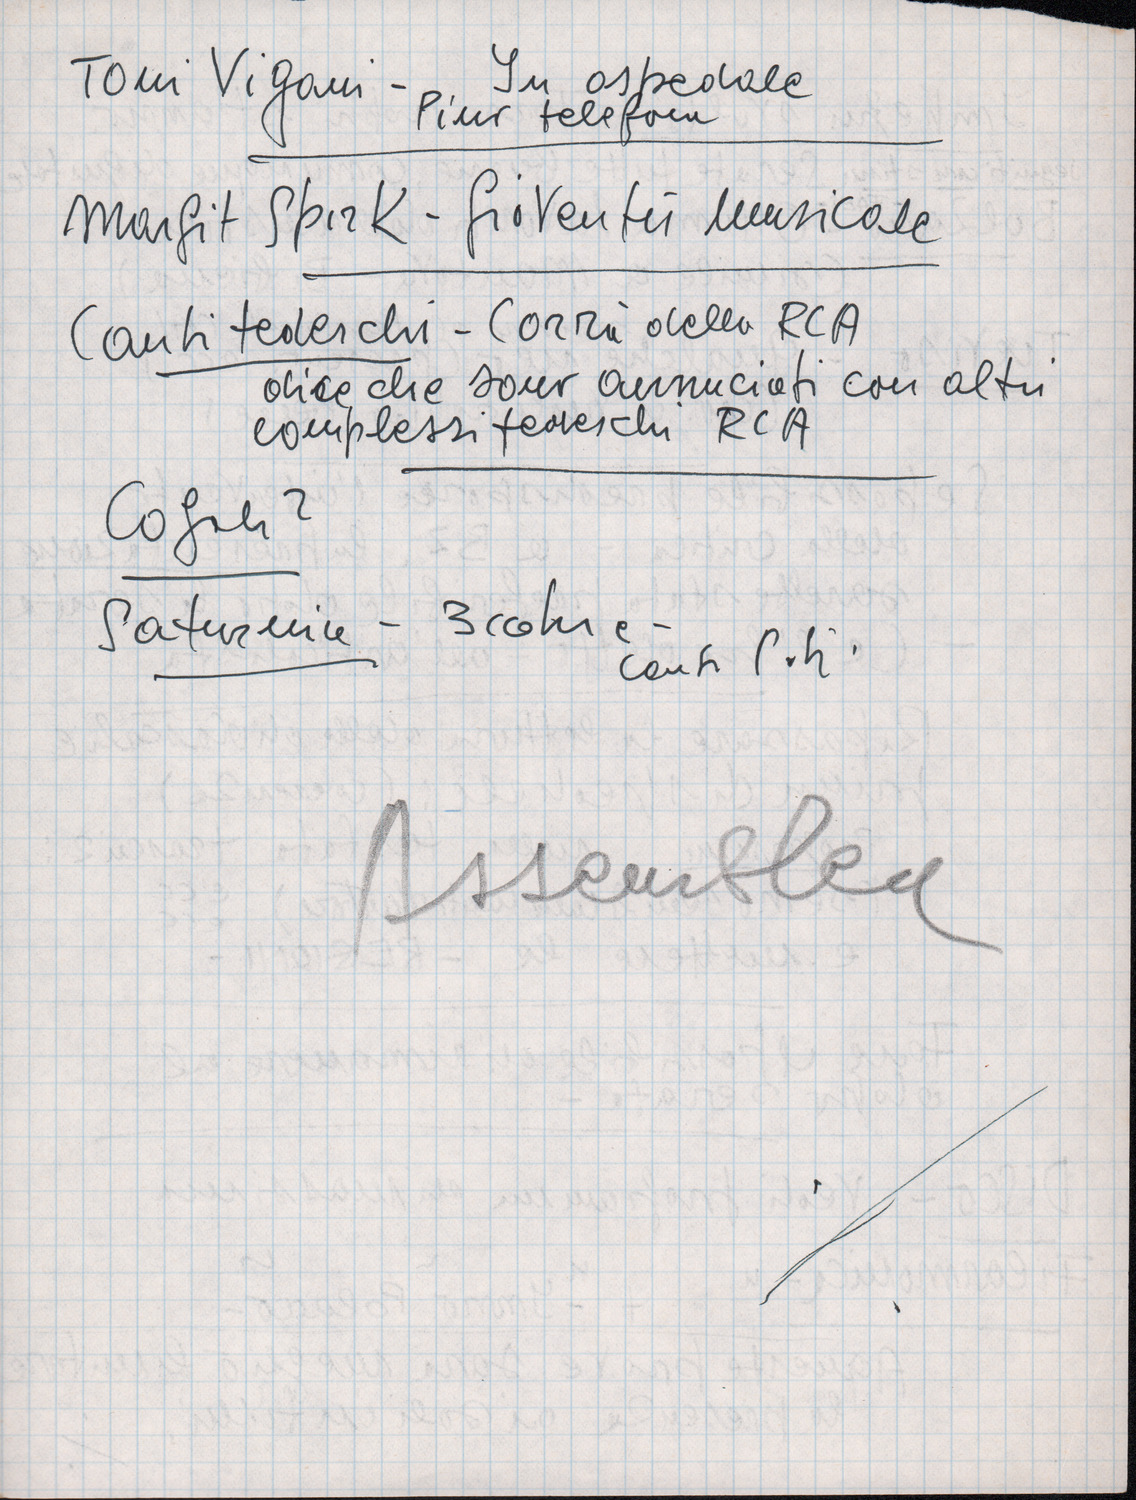 Toni Vigani - In ospedale
Pier telefona
Margit Spirk - Gioventù Musicale
Canti tedeschi - Corrà della RCA
dice che sono annunciati con altri
complessi tedeschi RCA
?
- 3 e -
canti
Assemblea